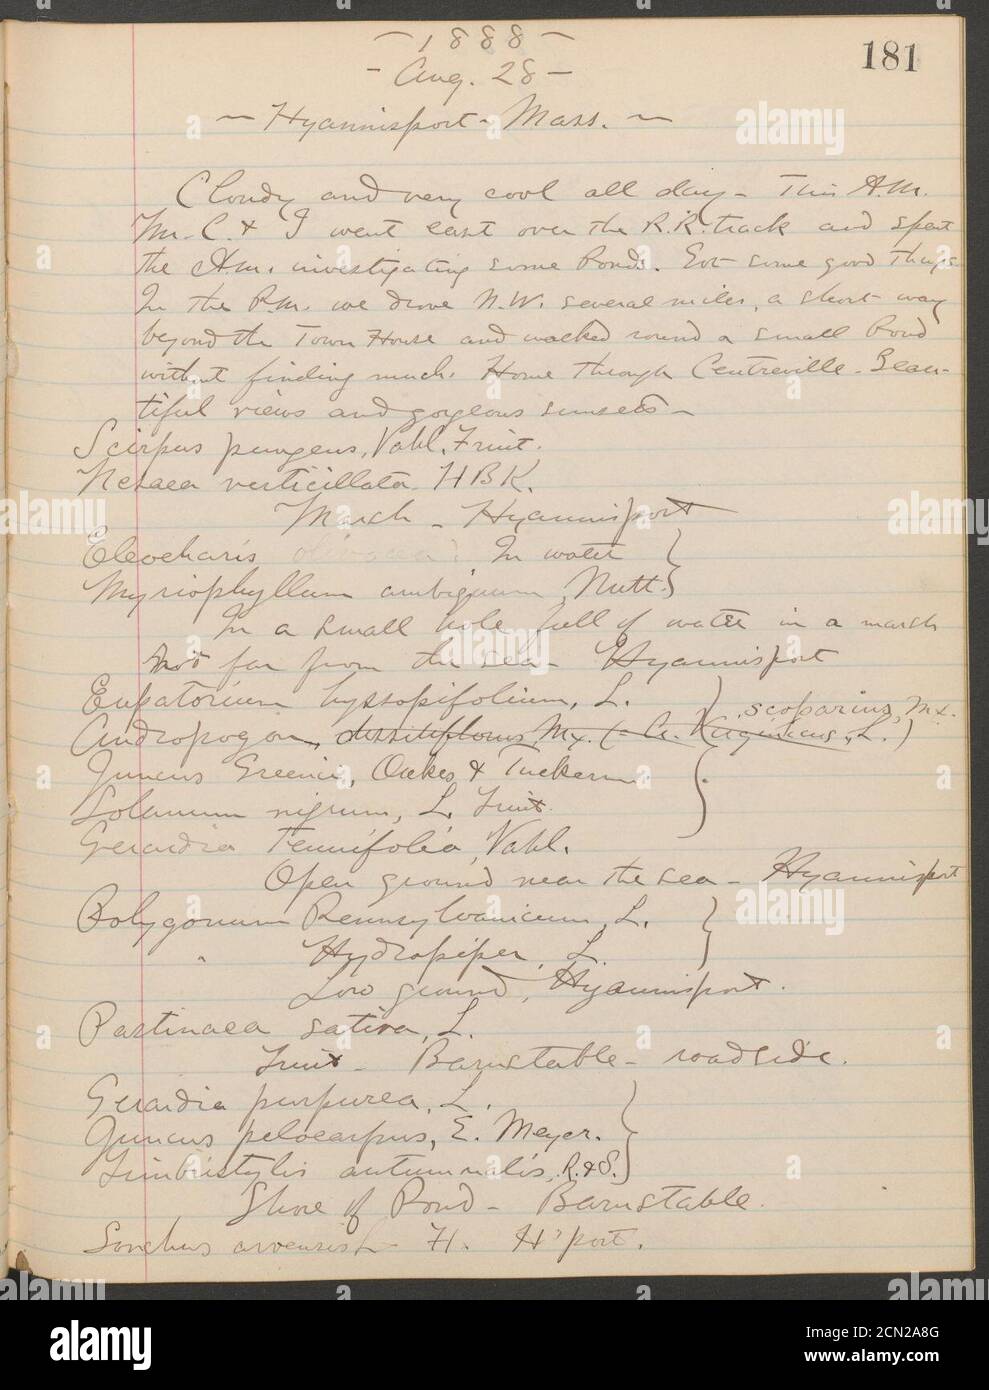 181
— 1888 —
- Aug. 28 -
~ Hyannisport - Mass. ~
Cloudy and very cool all day - This A.M.
Mr. C. & I went east over the R.R. track and spent
the A.M. investigating some Ponds. Got some good things
In the P.M. we drove N.W. several miles, a short way
beyond the Town House and walked round a small Pond
without finding much. Home through Centreville - Beau-
tiful views and gorgeous sunsets -
Scirpus pungens, Vahl. Fruit.
Nesaea verticillata HBK.
Marsh - Hyannisport
Eleocharis olivacea? In water
Myriophyllum ambiguum, Nutt.
In a small hole full of water in a marsh
not far from the sea - Hyannisport
Eupatorium hyssopifolium, L.
scoparius, Mx.
Andropogon, dissitiflorus, Mx. (= A. Virginicus, L.)
Juncus Greenii, Oakes & Tuckerm.
Solanum nigrum, L. Fruit.
Gerardia tenuifolia, Vahl.
Open ground near the sea - Hyannisport
Polygonum Pennsylvanicum, L.
" Hydropiper, L.
Low ground, Hyannisport.
Pastinaca sativa, L.
Fruit - Barnstable - roadside.
Gerardia purpurea, L.
Juncus pelocarpus, E. Meyer.
Fimbristylis autumnalis, R. & S.
Shore of Pond - Barnstable.
Sonchus arvensis L - H. H'port.
alamy
alamy
alamy
alamy
alamy
2CN2A8G
www.alamy.com